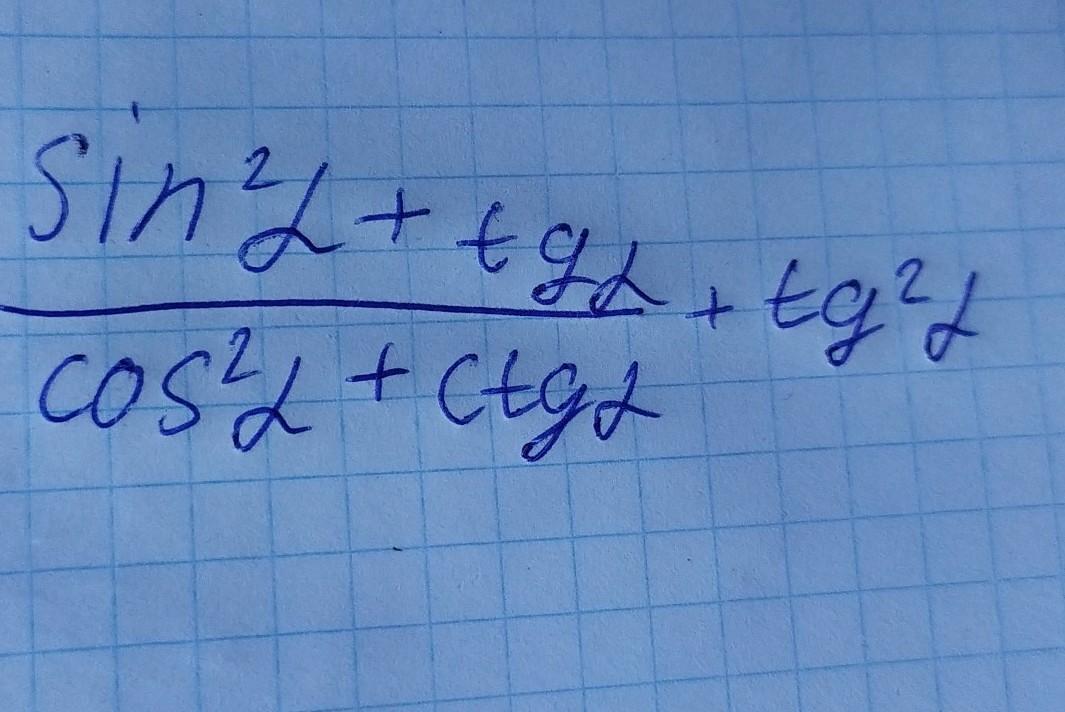 sin²α + tgα
cos²α + ctgα + tg²α